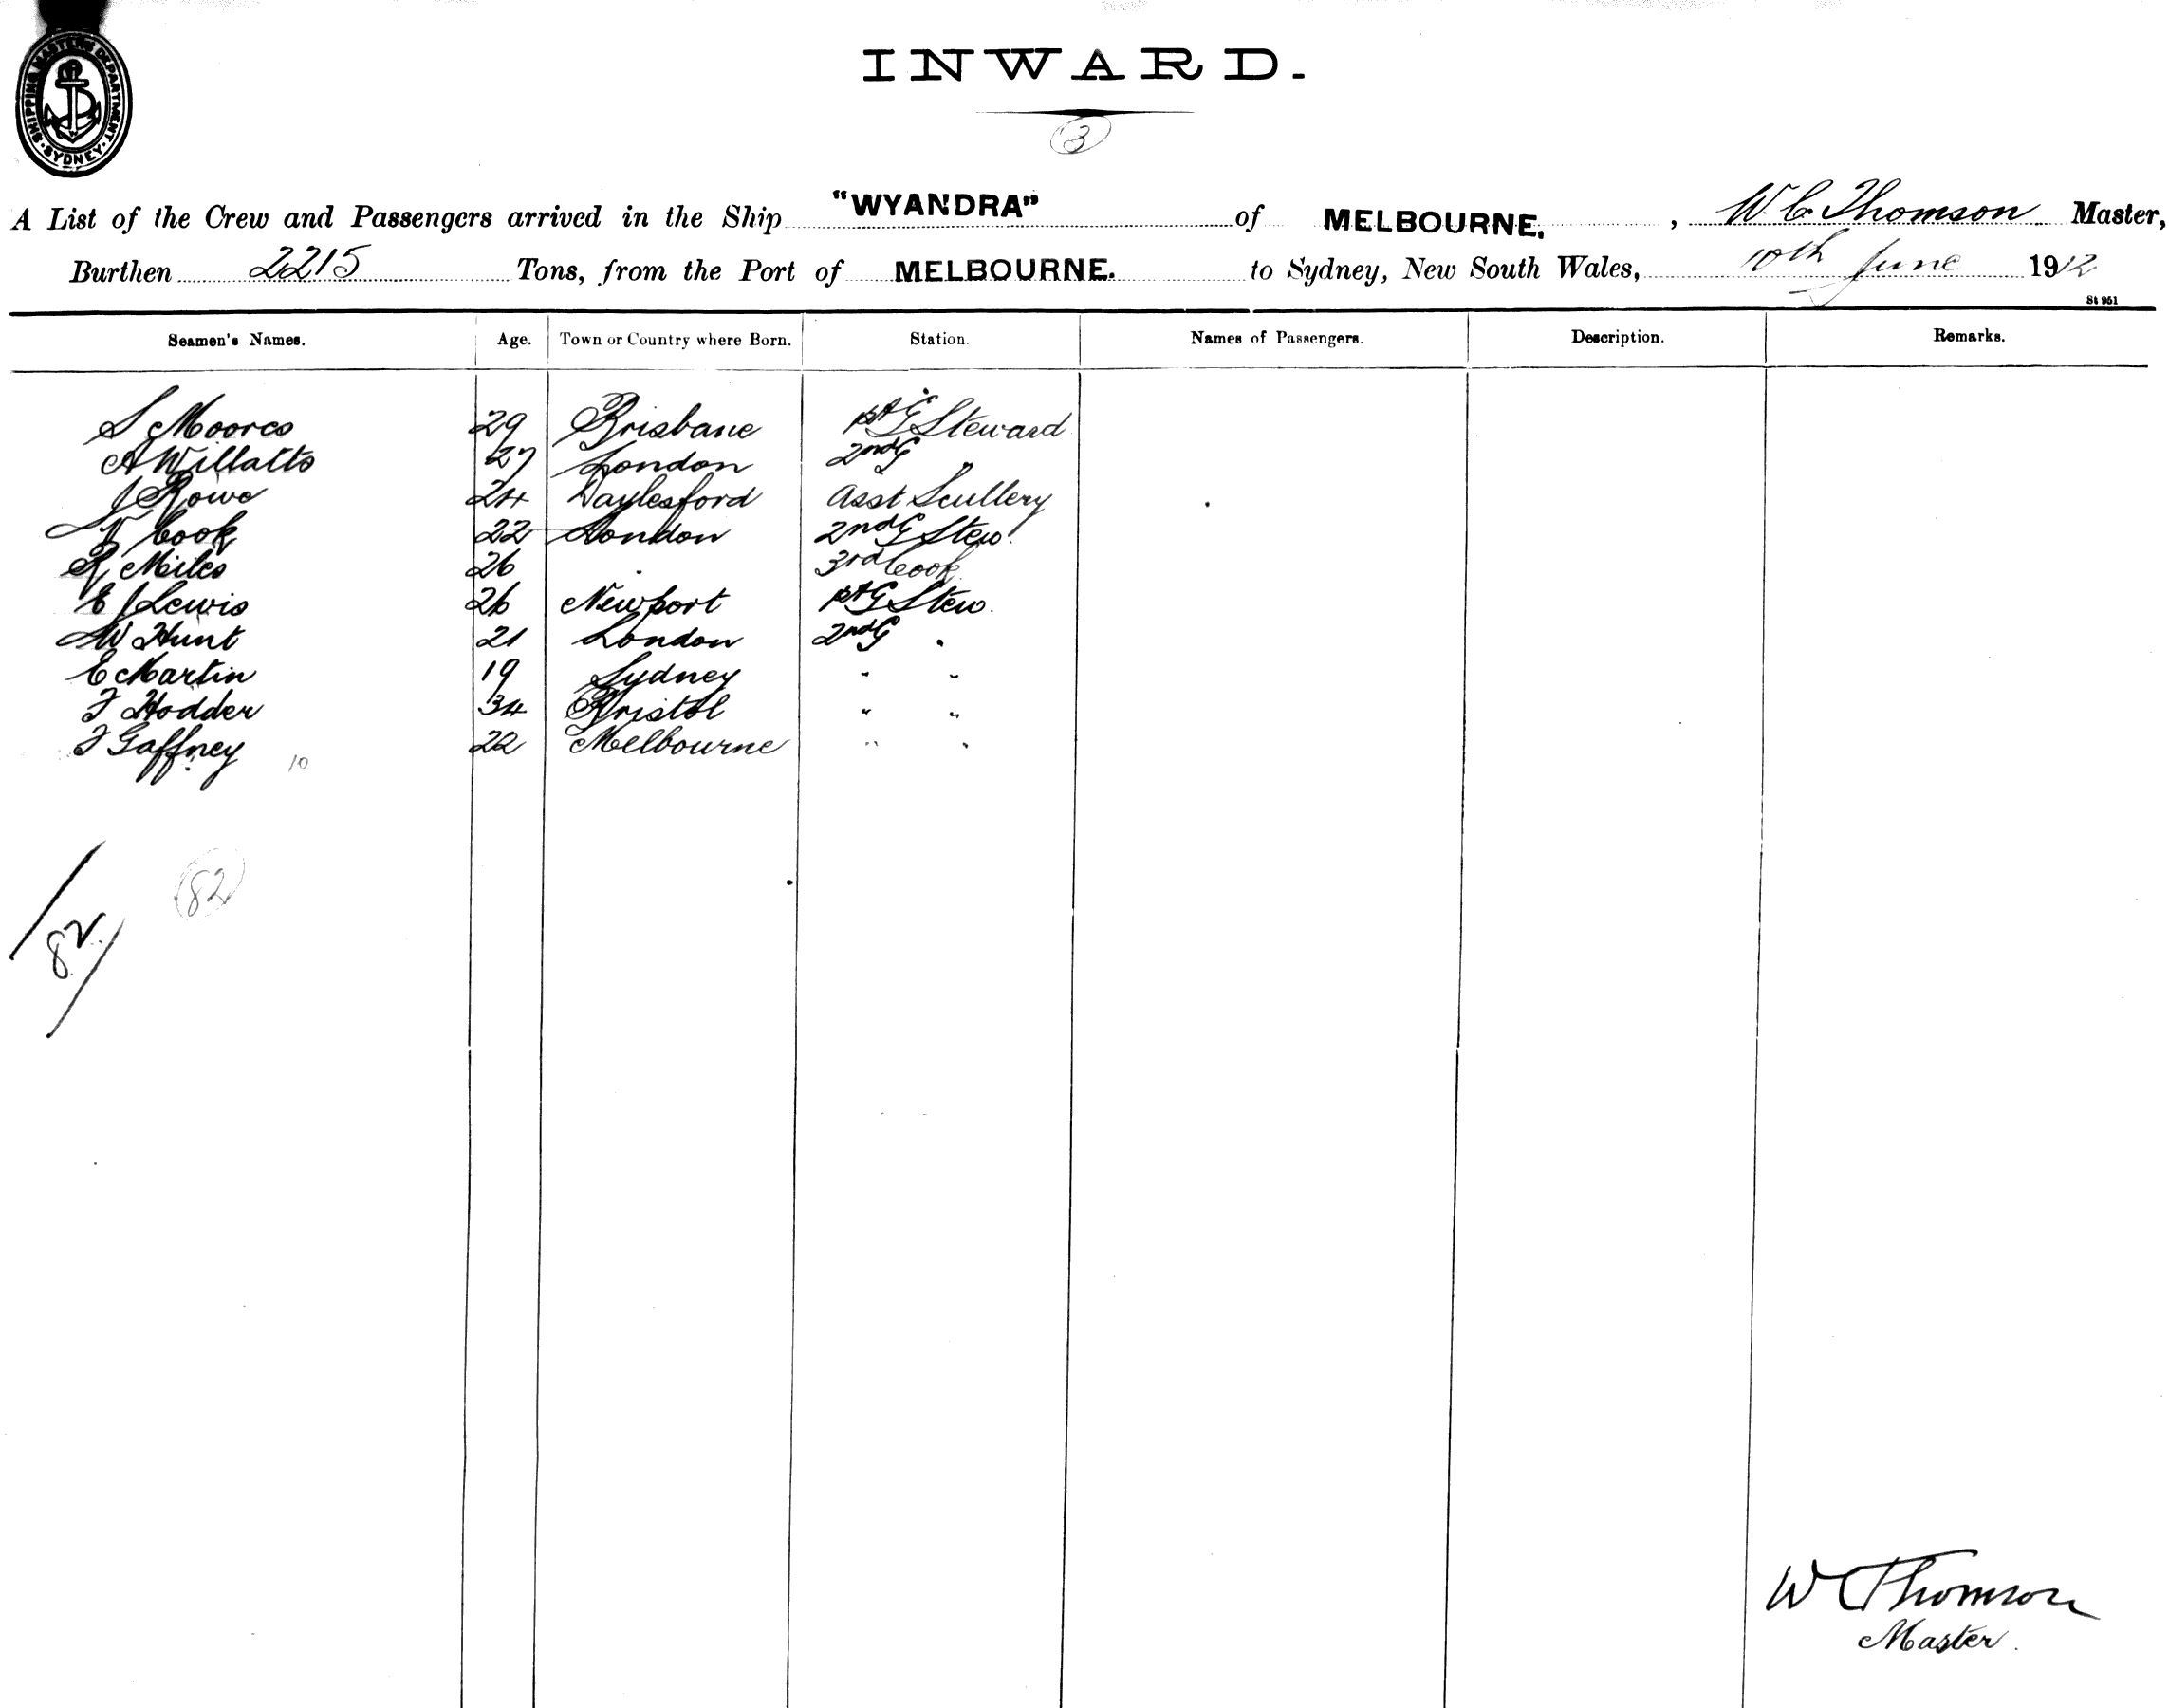 SHIPPING MASTERS DEPARTMENT · SYDNEY ·
INWARD.
3
A List of the Crew and Passengers arrived in the Ship "WYANDRA" of MELBOURNE, , W. C. Thomson Master,
Burthen 2215 Tons, from the Port of MELBOURNE. to Sydney, New South Wales, 10th June 1912
St 951
Seamen's Names. Age. Town or Country where Born. Station. Names of Passengers. Description. Remarks.
S Moores 29 Brisbane 1st G Steward
A Willatts 27 London 2nd G "
J Rowe 24 Daylesford Asst Scullery
Cook 22 London 2nd G Stew.
R Miles 26 " 3rd Cook
E J Lewis 26 Newport 1st G Stew.
W Hunt 21 London 2nd G "
E Martin 19 Sydney " "
F Hodder 34 Bristol " "
F Gaffney 22 Melbourne " "
10
82
82
W C Thomson
Master.